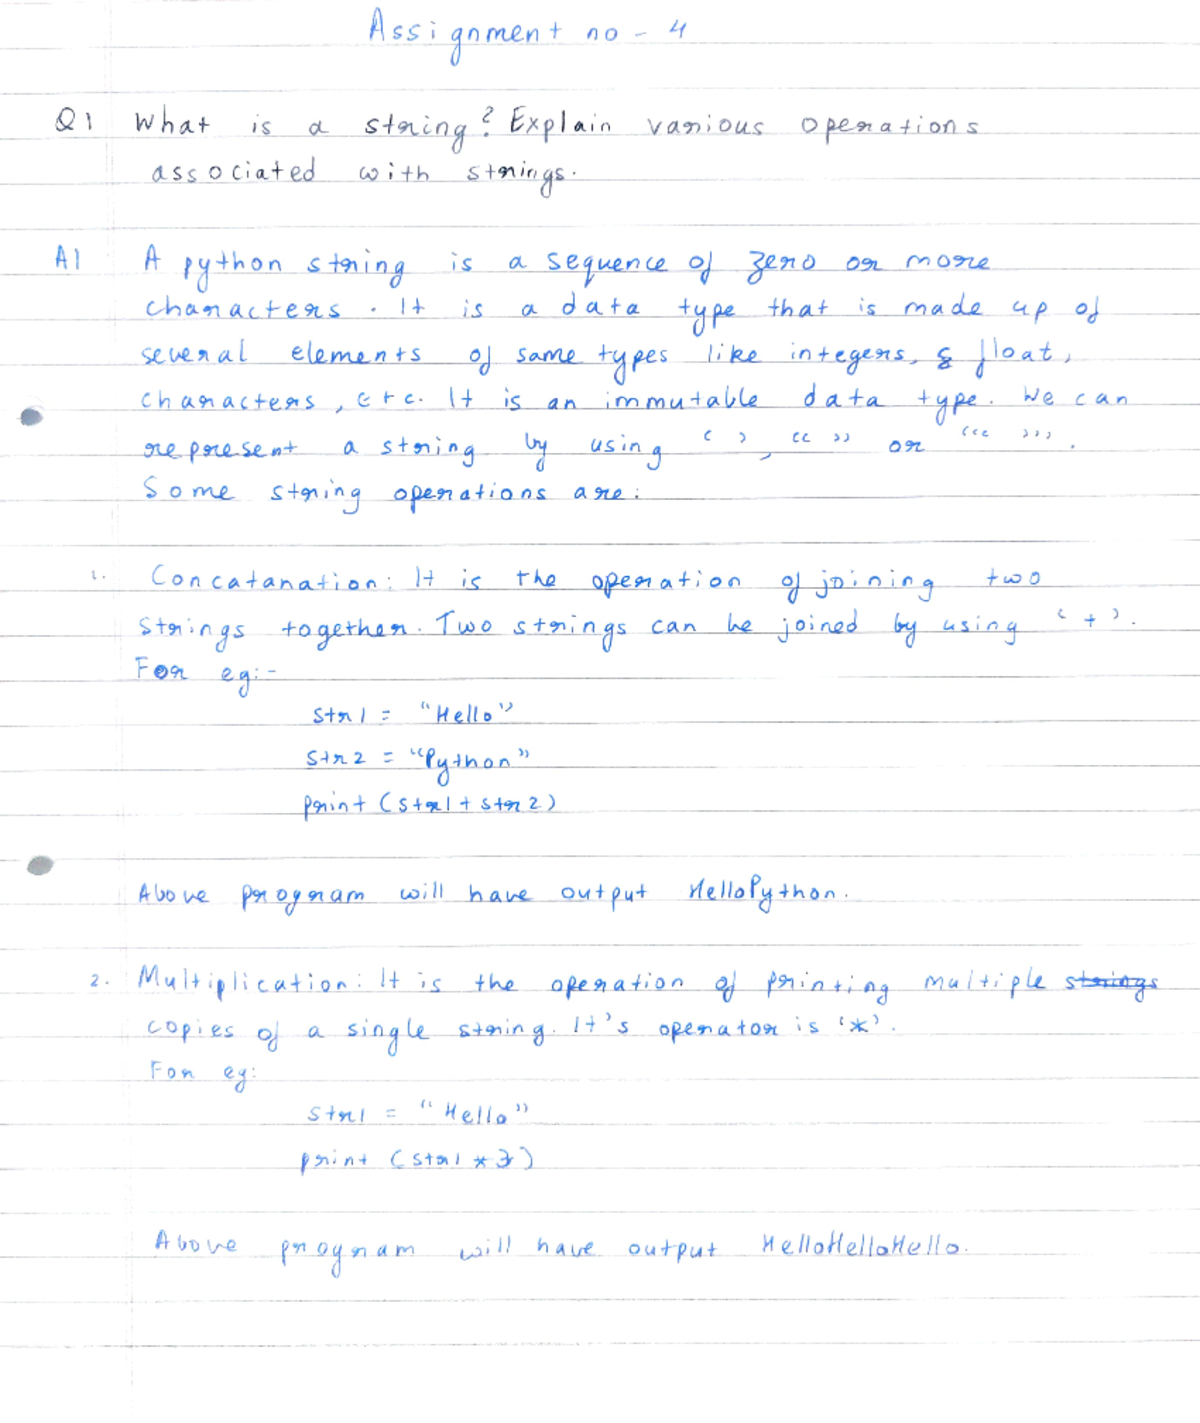 Assignment no - 4
Q1 What is a string? Explain various operations
associated with strings.
A1 A python string is a sequence of zero or more
characters. It is a data type that is made up of
several elements of same types like integers, & float,
characters, etc. It is an immutable data type. We can
represent a string by using ‘ ’, “ ” or ‘‘‘ ’’’.
Some string operations are:
1. Concatanation: It is the operation of joining two
strings together. Two strings can be joined by using ‘+’.
For eg:-
Str1 = "Hello"
Str2 = "Python"
print (Str1 + Str2)
Above program will have output HelloPython.
2. Multiplication: It is the operation of printing multiple strings
copies of a single string. It's operator is ‘*’.
For eg:
Str1 = "Hello"
print (Str1 * 3)
Above program will have output HelloHelloHello.